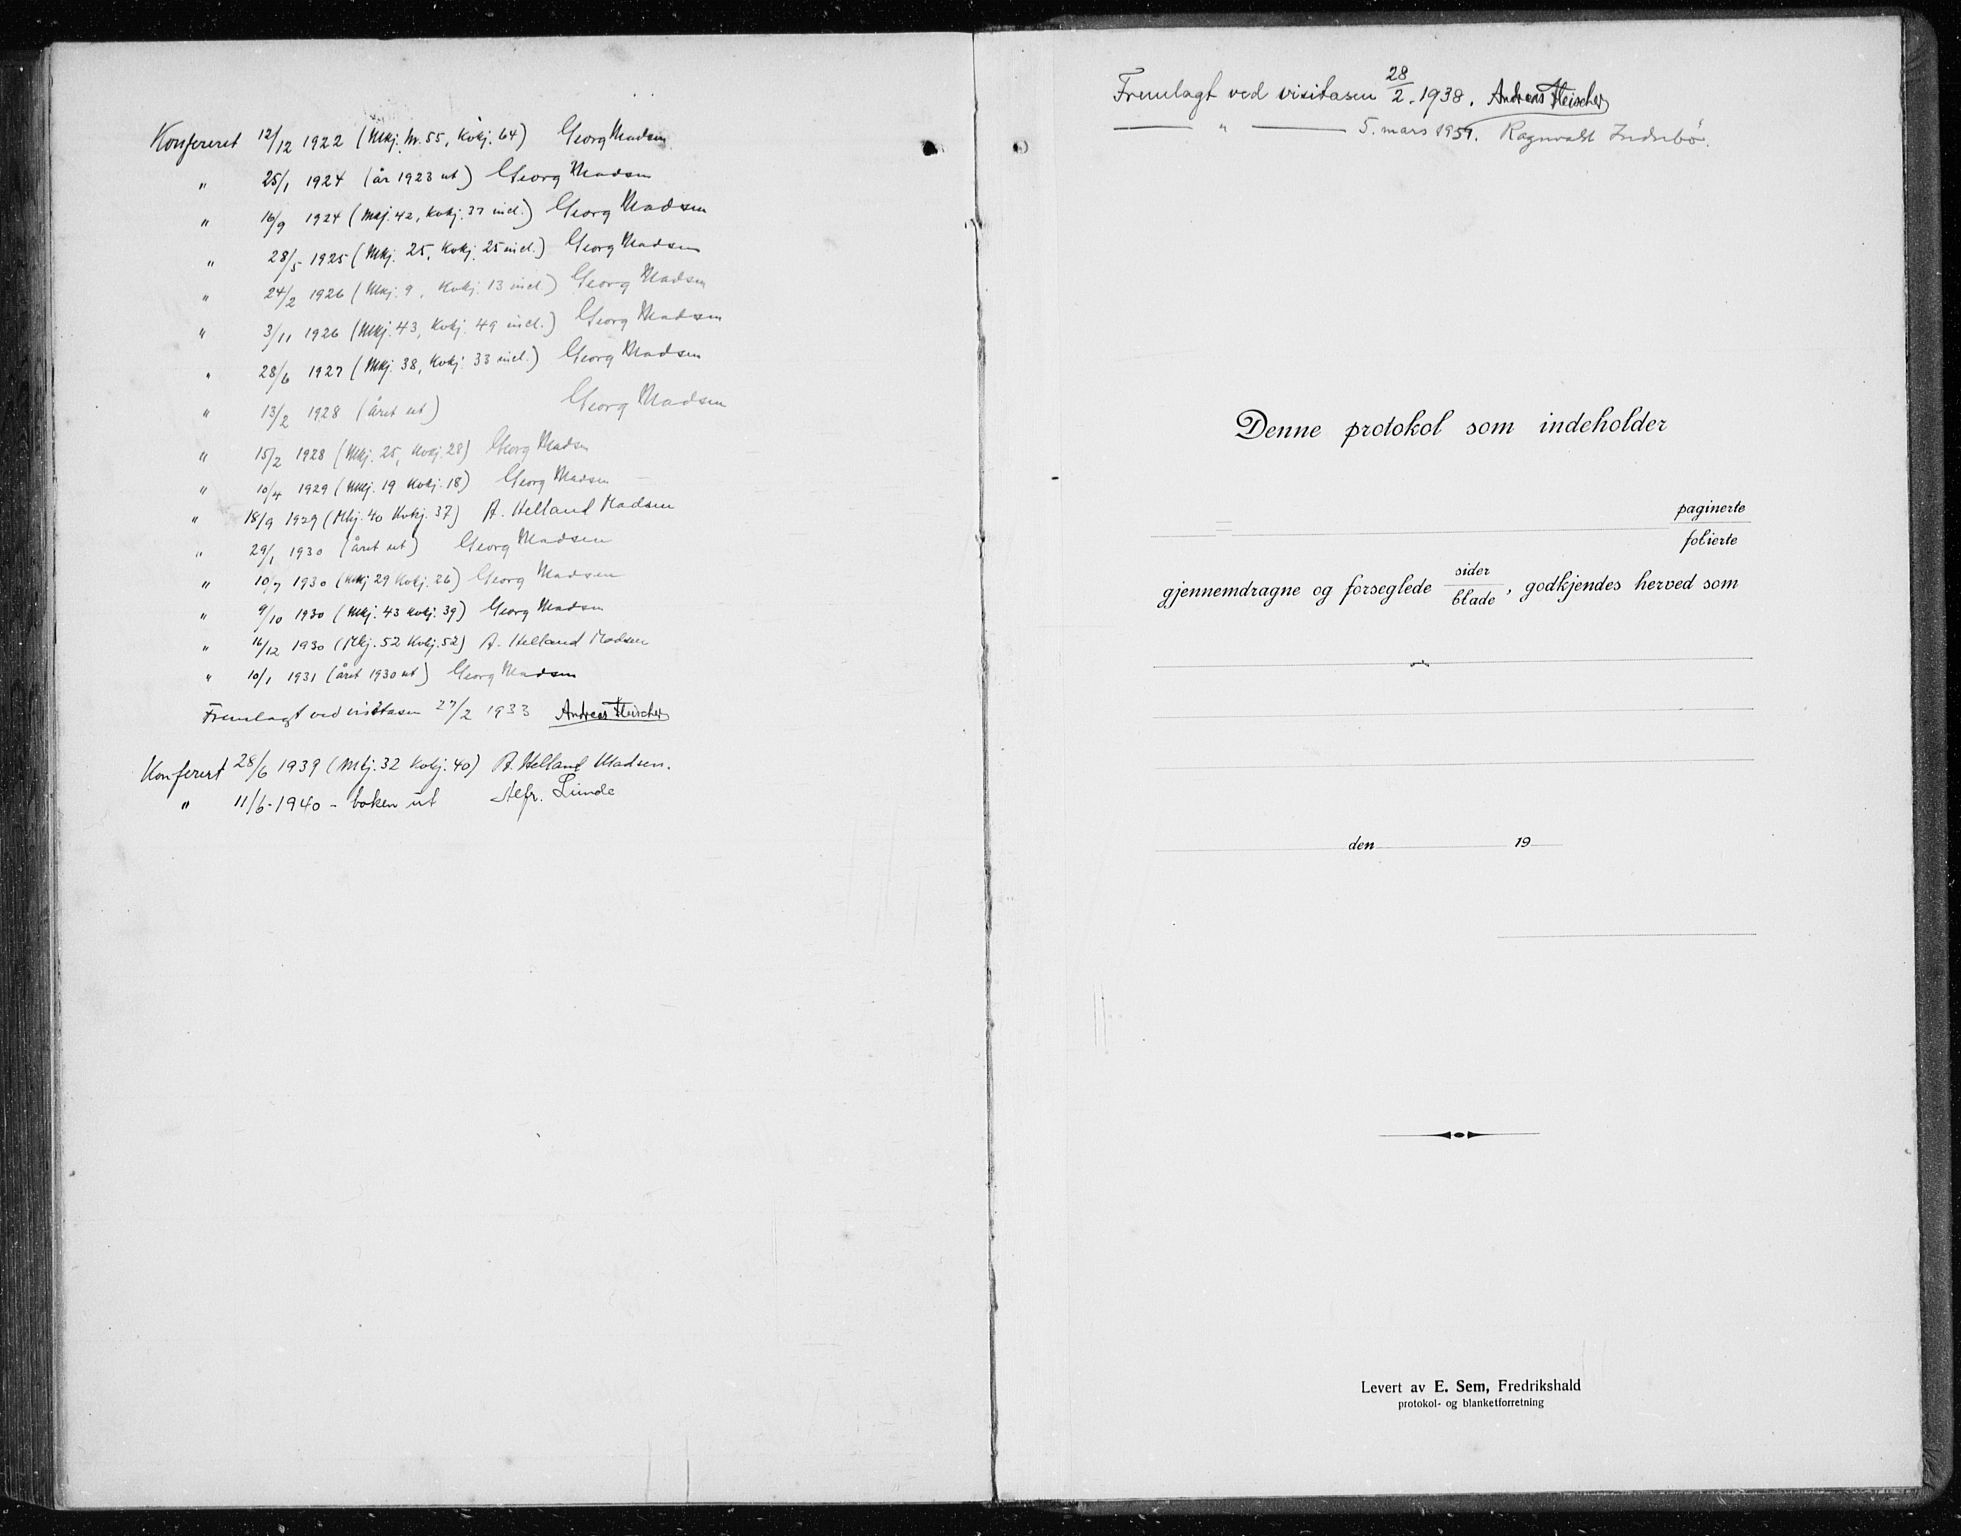 Konfereret 12/12 1922 (Mkj. nr. 55, Kvkj. 64) Georg Madsen
" 25/1 1924 (år 1923 ut) Georg Madsen
" 16/9 1924 (Mkj. 42, Kvkj. 37 incl.) Georg Madsen
" 28/5 1925 (Mkj. 25, Kvkj. 25 incl.) Georg Madsen
" 24/2 1926 (Mkj. 9, Kvkj. 13 incl.) Georg Madsen
" 3/11 1926 (Mkj. 43, Kvkj. 49 incl.) Georg Madsen
" 28/6 1927 (Mkj. 38, Kvkj. 33 incl.) Georg Madsen
" 13/2 1928 (året ut) Georg Madsen
" 15/2 1928 (Mkj. 25, Kvkj. 28) Georg Madsen
" 10/4 1929 (Mkj. 19 Kvkj. 18) Georg Madsen
" 18/9 1929 (Mkj. 40 Kvkj. 37) A. Helland Madsen
" 29/1 1930 (året ut) Georg Madsen
" 10/7 1930 (Mkj 29 Kvkj. 26) Georg Madsen
" 9/10 1930 (Mkj. 43 Kvkj. 39) Georg Madsen
" 16/12 1930 (Mkj. 52 Kvkj. 52) A. Helland Madsen
" 10/1 1931 (året 1930 ut) Georg Madsen
Fremlagt ved visitasen 27/2 1933 Andreas Fleischer
Konferert 28/6 1939 (Mkj. 32 Kvkj. 40) A. Helland Madsen.
" 11/6-1940 - boken ut Alfr. Lunde
Fremlagt ved visitasen 28/2. 1938. Andreas Fleischer
— " — 5. mars 1951. Ragnvald Indrebø.
Denne protokol som indeholder
paginerte
folierte
gjennemdragne og forseglede sider/blade, godkjendes herved som
den 19
Levert av E. Sem, Fredrikshald
protokol- og blanketforretning